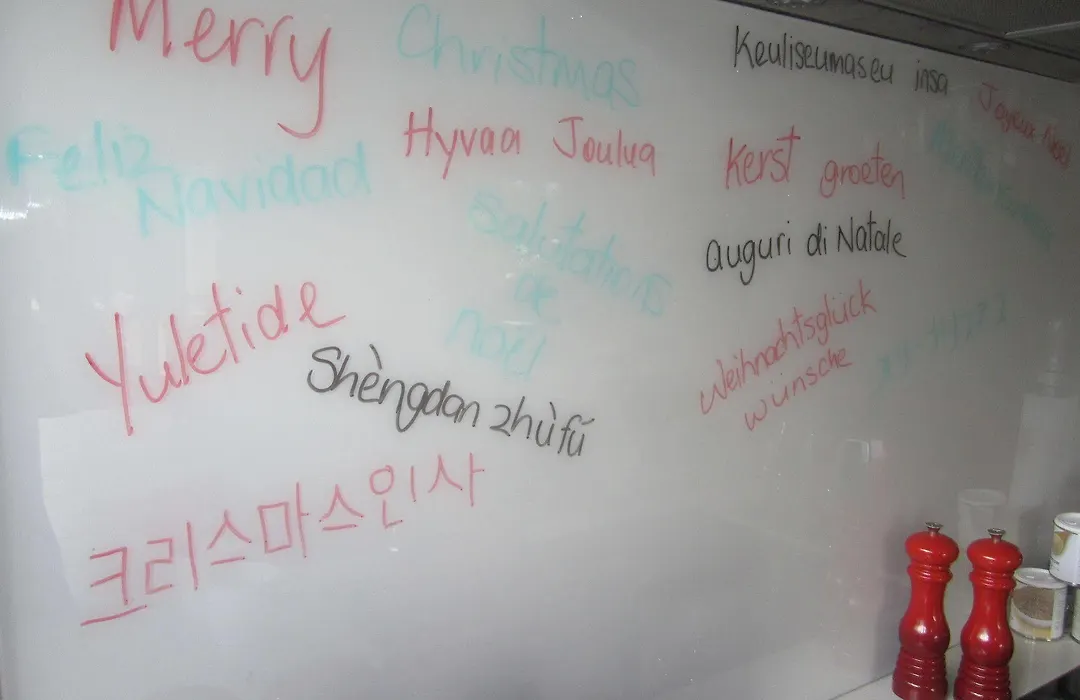 Merry Christmas
Keuliseumaseu insa
Joyeux Noel
Feliz
Navidad
Hyvaa Joulua
Kerst groeten
Salutations
de
noel
auguri di Natale
Yuletide
Weihnachtsglück
wünsche
Shèngdan zhùfú
크리스마스인사